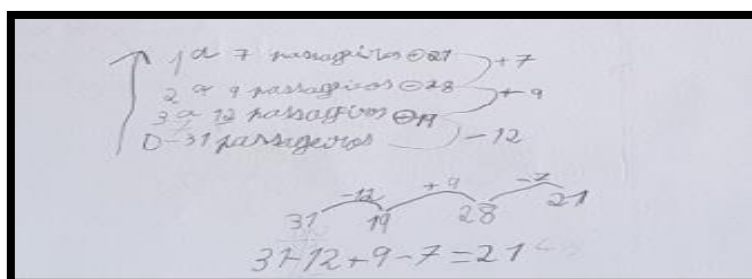 1ª 7 passageiros ⊖ 21 +7
2ª 9 passageiros ⊖ 28 +9
3ª 12 passageiros ⊖ 19 -12
0-31 passageiros
-12 +9 -7
31 19 28 21
31-12+9-7=21